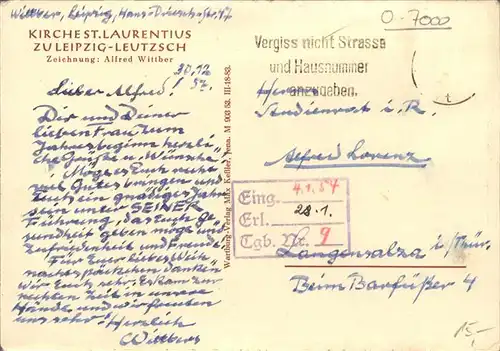 Witther, Leipzig, Hans-Driesch-Str. 47
KIRCHE ST. LAURENTIUS
ZU LEIPZIG-LEUTZSCH
Zeichnung: Alfred Witther
30.12.
57.
Lieber Alfred!
Dir und Deiner
lieben Frau zum
Jahresbeginn herzli-
che Grüße u. Wünsche!
Möge es Euch recht
viel Gutes bringen und
Euch ein gnädiges Jahr
sein unter SEINER
Führung, das Euch Ge-
sundheit geben möge und
Zufriedenheit und Freude!
Für Euer liebes Weih-
nachtspäckchen danken
wir Euch sehr. Es kam zur
rechten Zeit in unsere
Hände und wir freuten
uns sehr. Herzlich
Witthers
Wartburg-Verlag Max Keßler, Jena. M 003 53. III-18-83.
O-7000
Vergiss nicht Strasse
und Hausnummer
anzugeben.
Herrn
Studienrat i. R.
Alfred Lorenz
Eing. 4.1.54
Erl. 28.1.
Tgb. Nr. 9
Langensalza i/Thür.
Beim Barfüßer 4
15,-